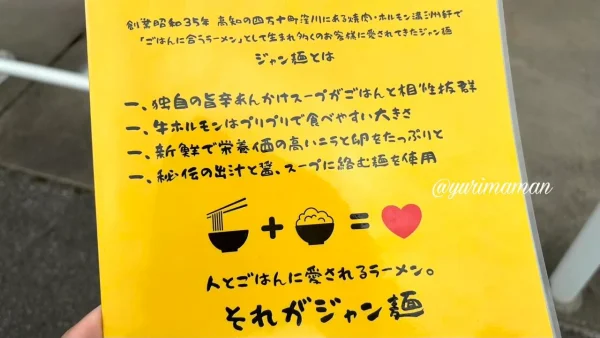 創業昭和35年 高知の四万十町窪川にある焼肉・ホルモン温洲軒で
「ごはんに合うラーメン」として生まれ多くのお客様に愛されてきたジャン麺
ジャン麺とは
一、独自の旨辛あんかけスープがごはんと相性抜群
一、牛ホルモンはプリプリで食べやすい大きさ
一、新鮮で栄養価の高いニラと卵をたっぷりと
一、秘伝の出汁と醤、スープに絡む麺を使用
@yurimaman
+ =
人とごはんに愛されるラーメン。
それがジャン麺